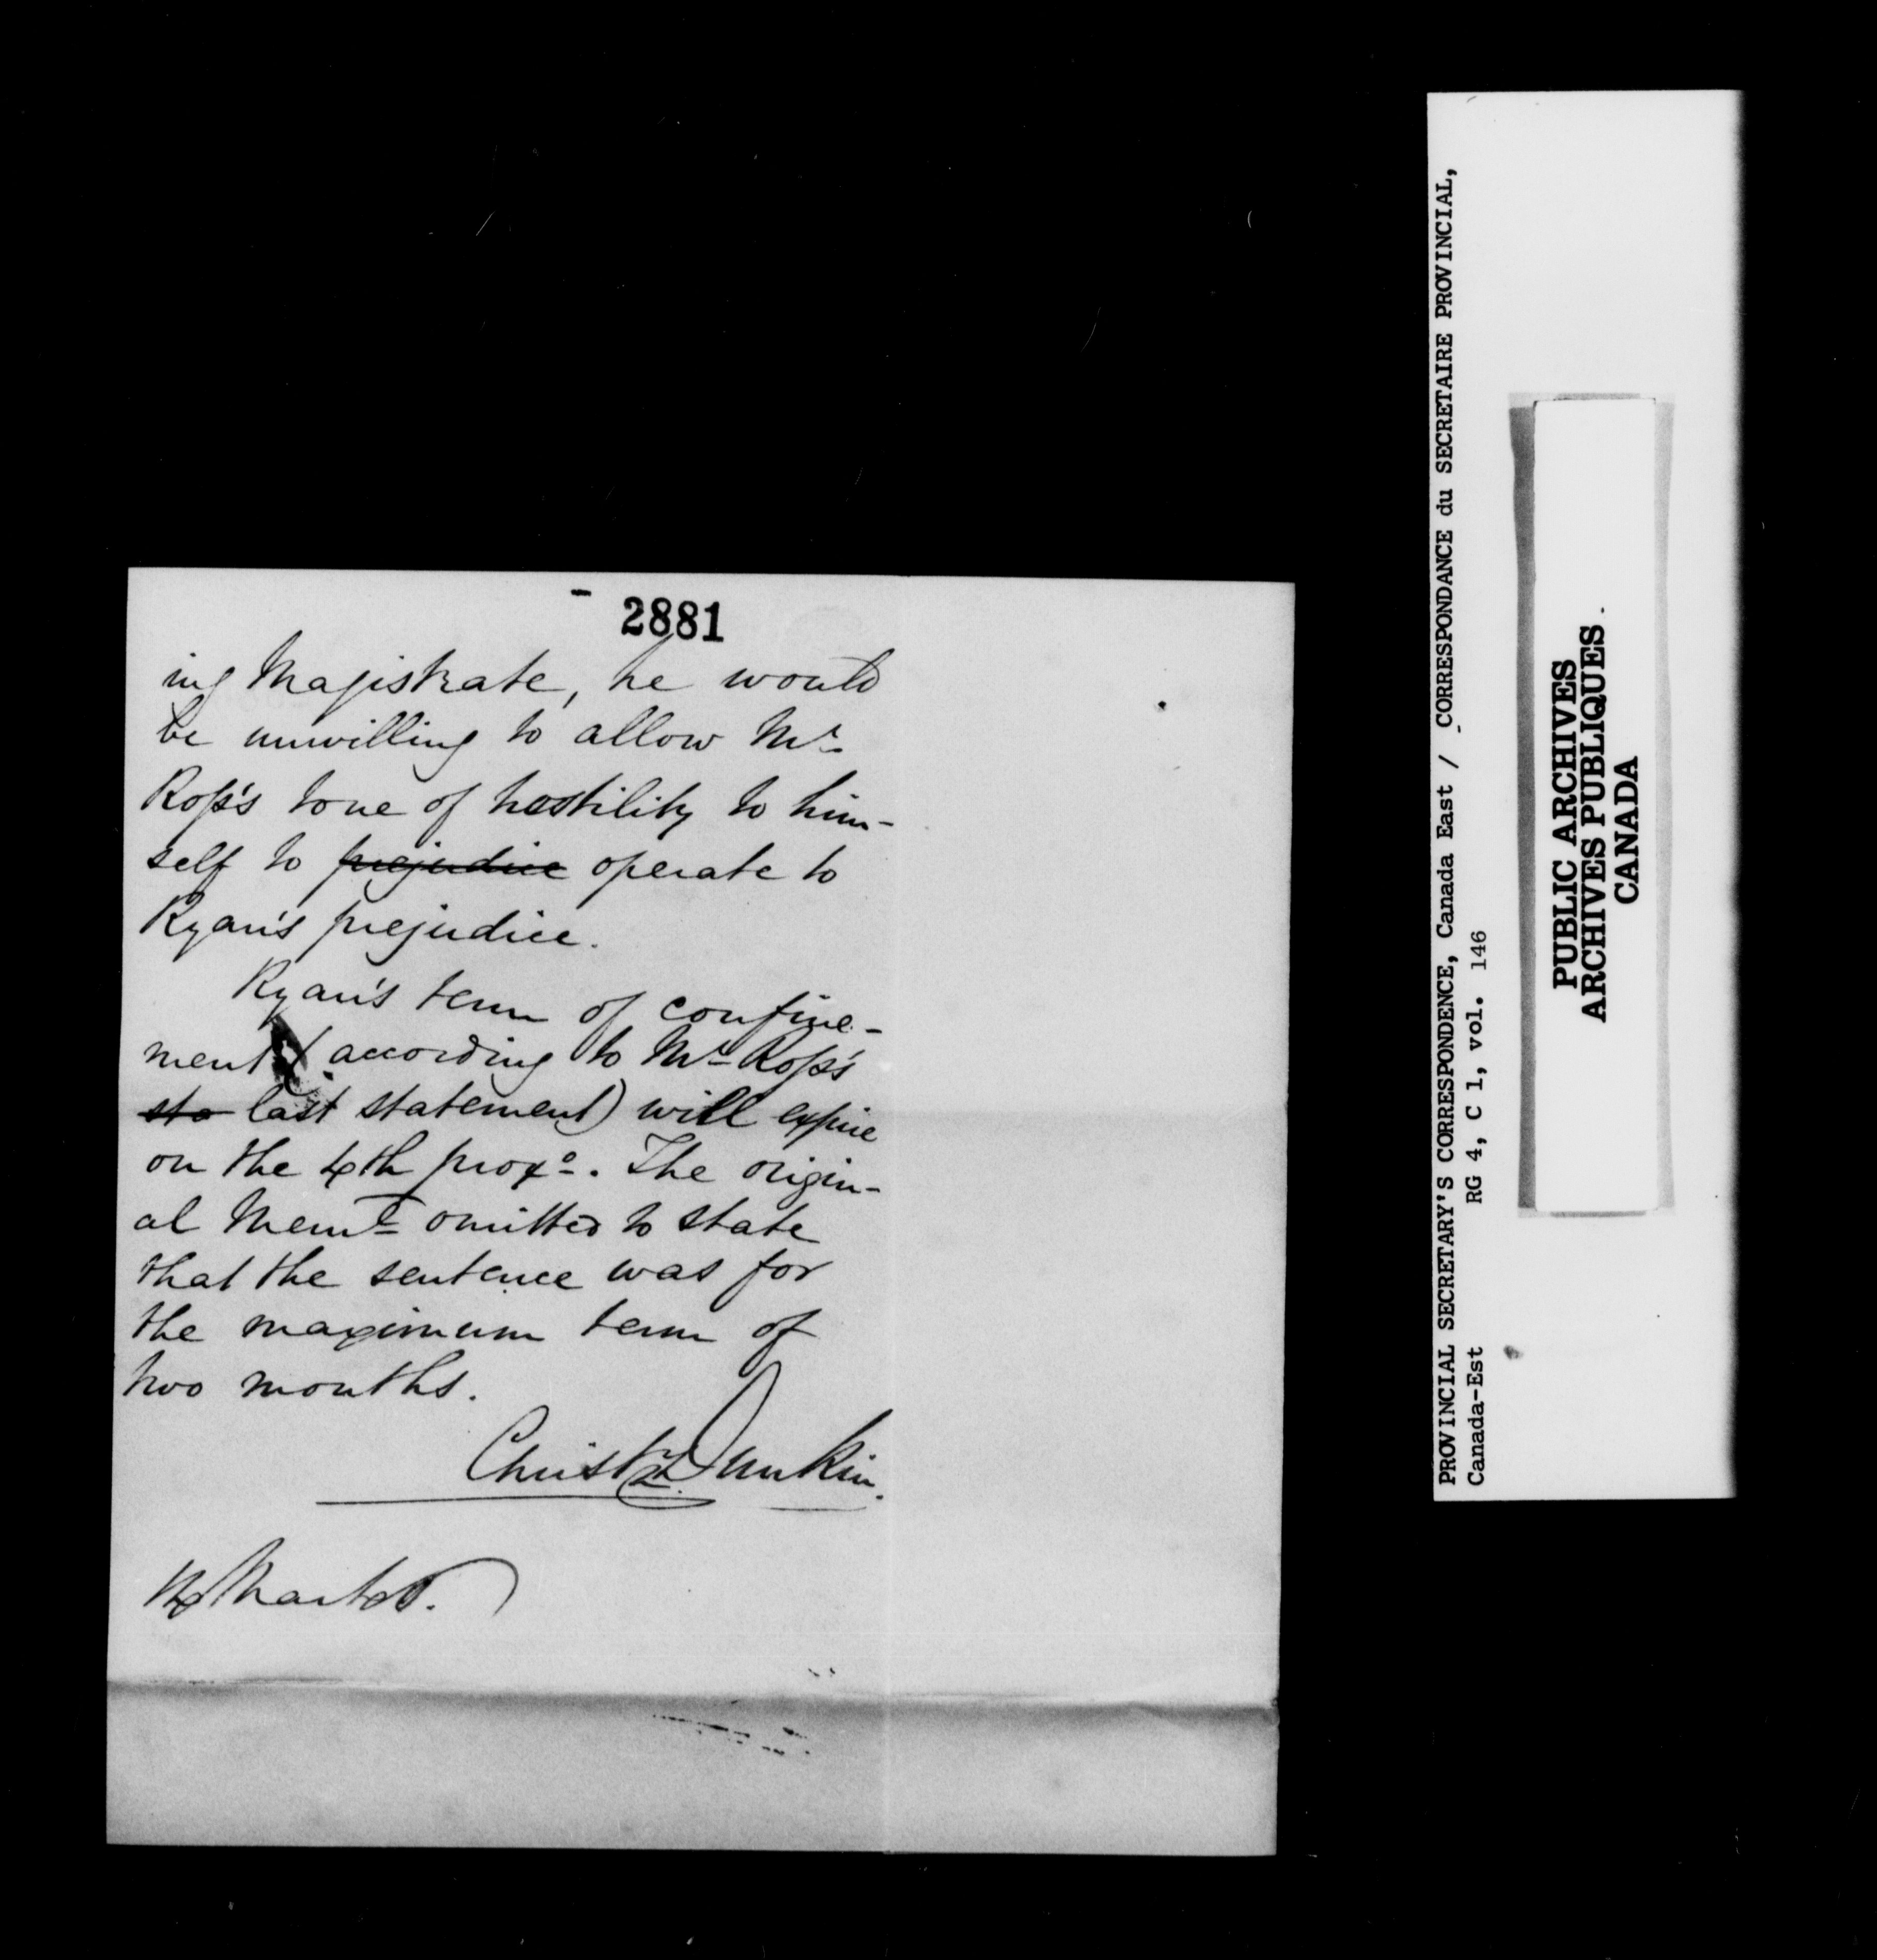 2881
ing Magistrate, he would
be unwilling to allow Mr
Ross's tone of hostility to him-
self to prejudice operate to
Ryan's prejudice.
Ryan's term of confine-
ment (according to Mr Ross's
sta last statement) will expire
on the 4th proxo. The origin-
al Memo omitted to state
that the sentence was for
the maximum term of
two months.
Christr Dunkin.
PROVINCIAL SECRETARY'S CORRESPONDENCE, Canada East / CORRESPONDANCE du SECRETAIRE PROVINCIAL,
Canada-Est RG 4, C 1, vol. 146
PUBLIC ARCHIVES
ARCHIVES PUBLIQUES
CANADA